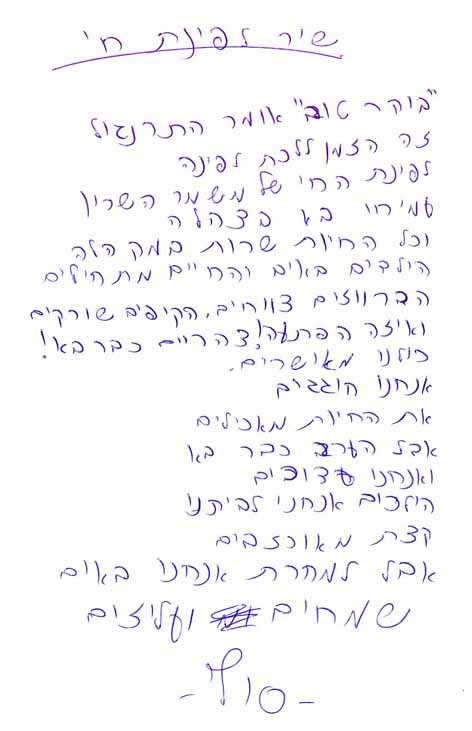 שיר לפינת חי
"בוקר טוב" אומר התרנגול
זה הזמן ללכת לפינה
לפינת החי של משמר השרון
עמירי בא בצהלה
וכל החיות שרות במקהלה
הילדים באים והחיים מתחילים
הברווזים צווחים, הקופים שורקים
ואיזה הפתעה! צהריים כבר בא!
כולנו מאושרים.
אנחנו חוגגים
את החיות מאכילים
אבל הערב כבר בא
ואנחנו עצובים
הולכים אנחנו לביתנו
קצת מאוכזבים
אבל למחרת אנחנו באים
שמחים ועליזים
- סוף -